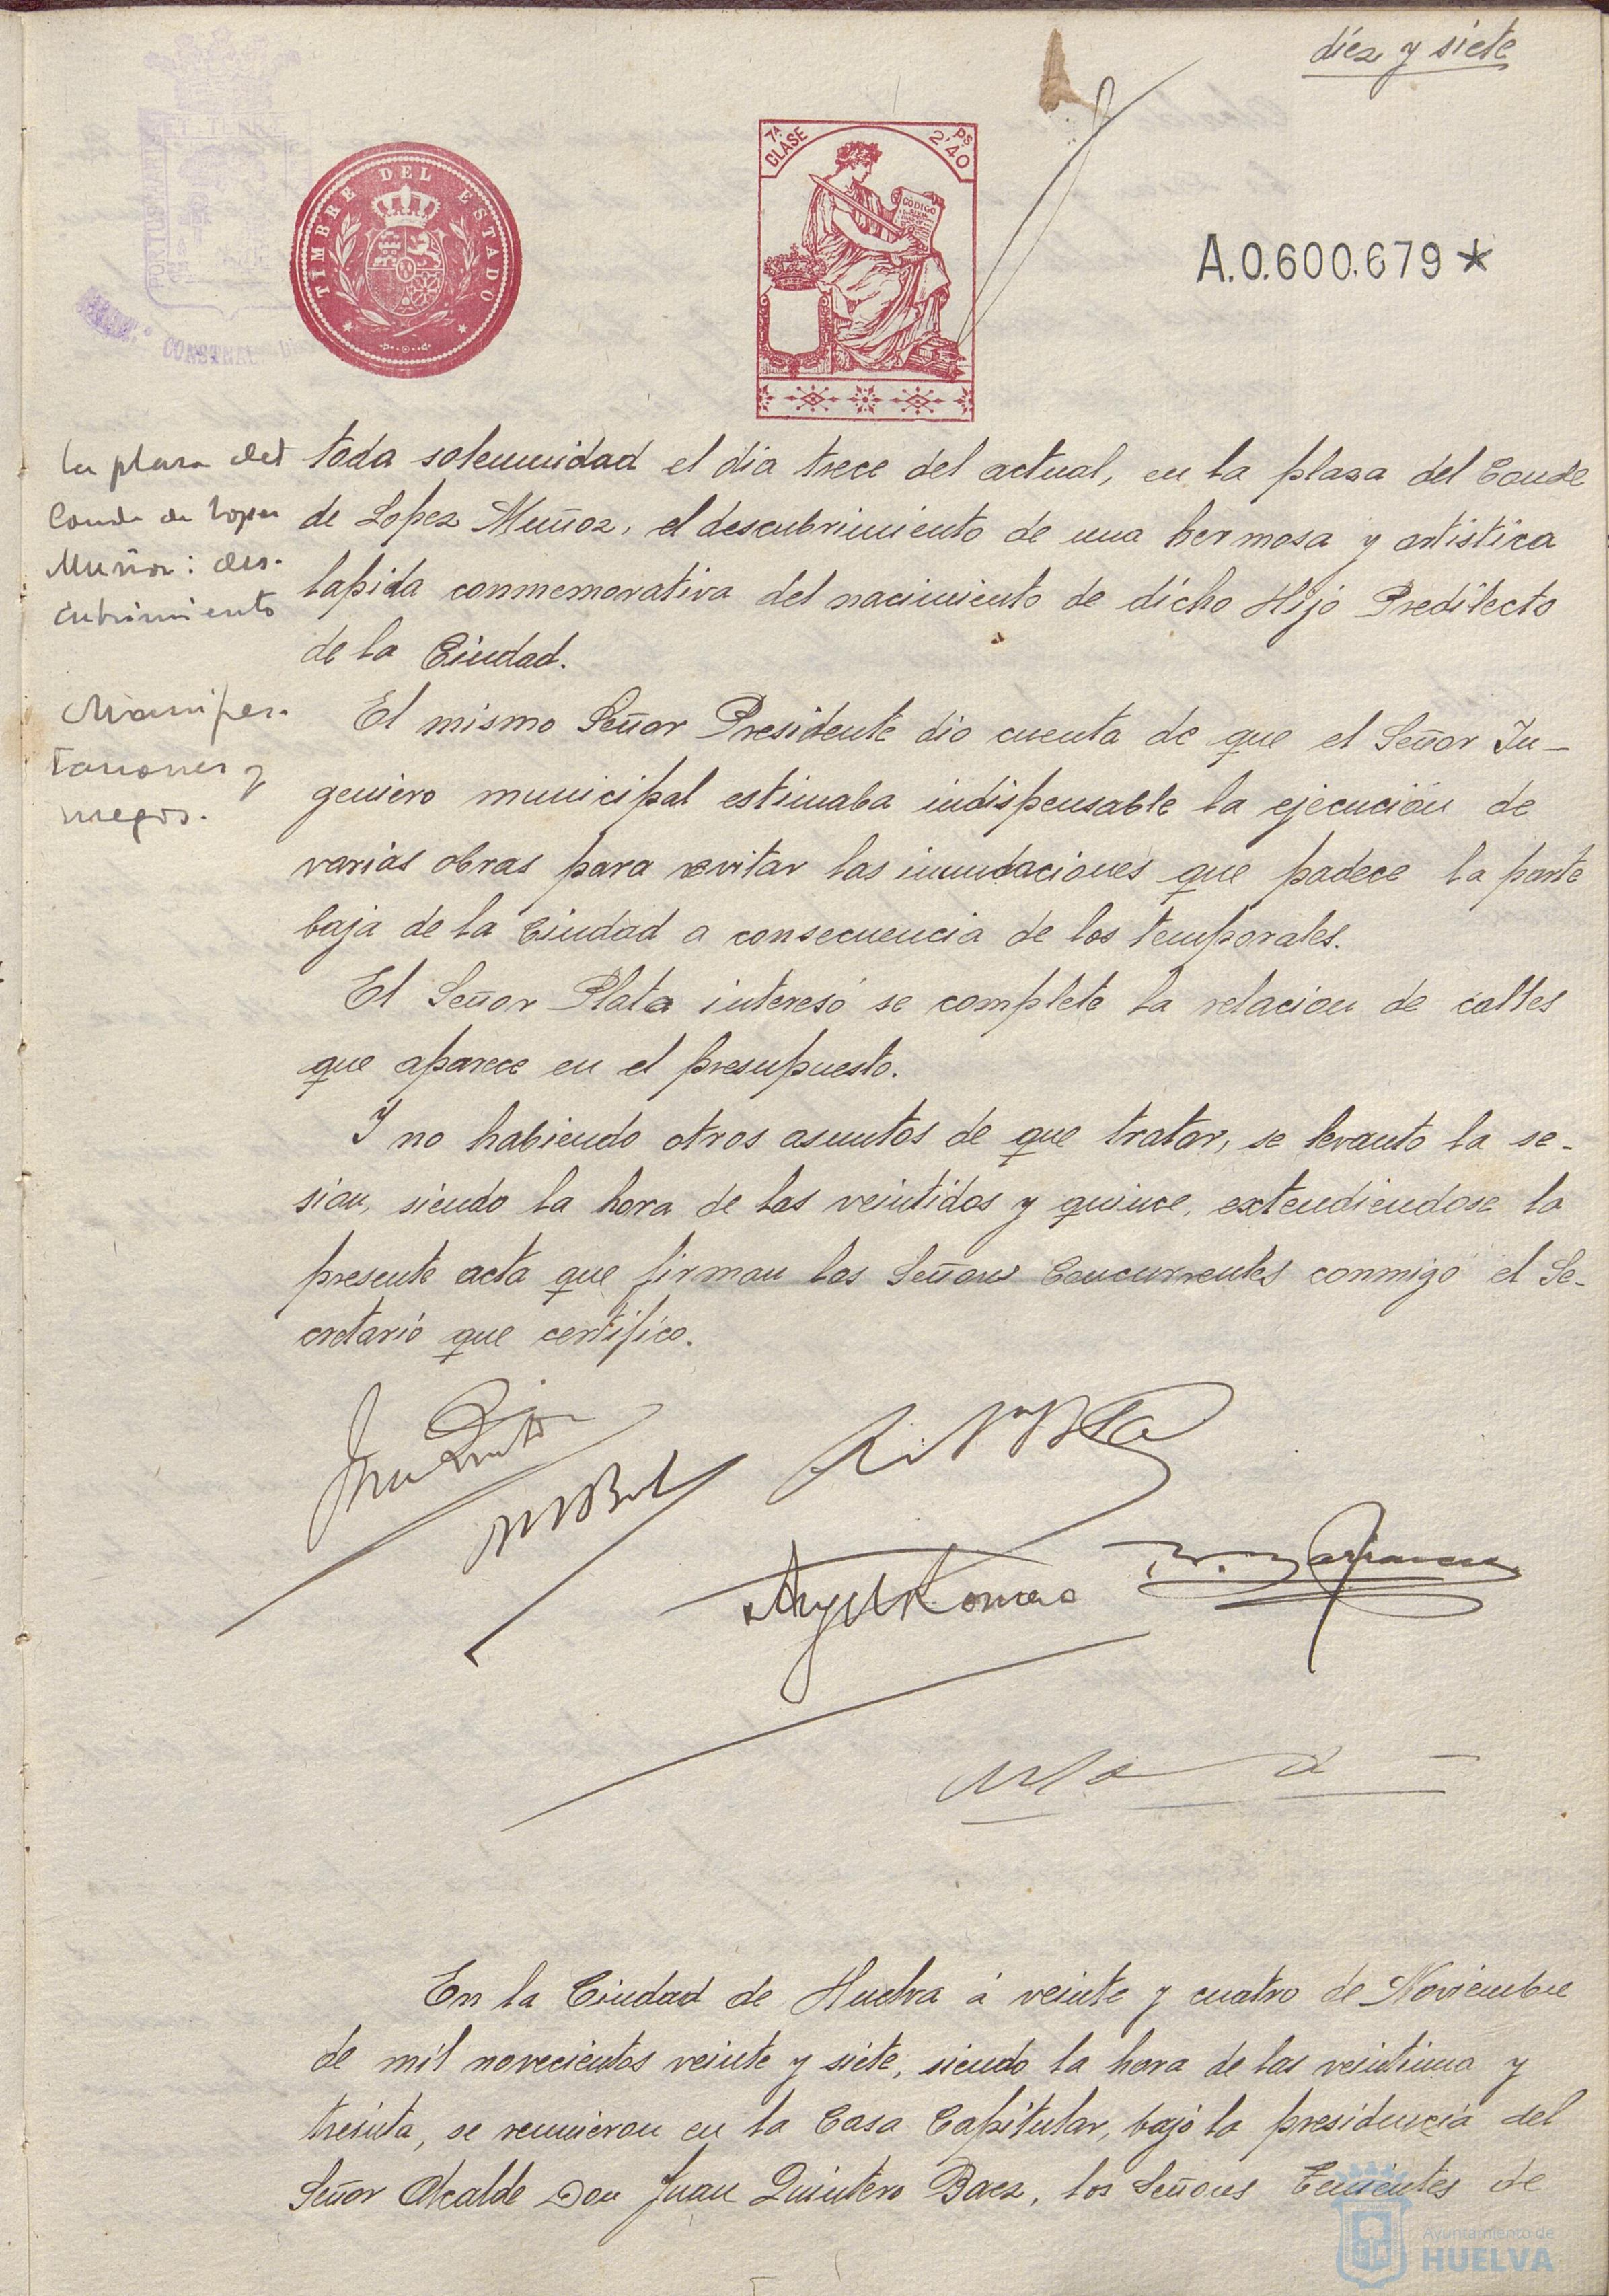 diez y siete
TIMBRE DEL ESTADO
7ª CLASE
2'40 Ps
CODIGO
A.0.600.679*
PORTUM
la plaza del
Conde de Lopez
Muñoz: des-
cubrimiento
toda solemnidad el dia trece del actual, en la plaza del Conde
de Lopez Muñoz, el descubrimiento de una hermosa y artistica
lapida conmemorativa del nacimiento de dicho Hijo Predilecto
de la Ciudad.
Manifes-
taciones y
ruegos.
El mismo Señor Presidente dio cuenta de que el Señor In-
geniero municipal estimaba indispensable la ejecución de
varias obras para evitar las inundaciones que padece la parte
baja de la Ciudad a consecuencia de los temporales.
El Señor Plata interesó se complete la relacion de calles
que aparece en el presupuesto.
Y no habiendo otros asuntos de que tratar, se levanto la se-
sion, siendo la hora de las veintidos y quince, extendiendose la
presente acta que firman los Señores Concurrentes conmigo el Se-
cretario que certifico.
Angel Romero
En la Ciudad de Huelva á veinte y cuatro de Noviembre
de mil novecientos veinte y siete, siendo la hora de las veintiuna y
treinta, se reunieron en la Casa Capitular, bajo la presidencia del
Señor Alcalde Don Juan Quintero Baez, los Señores Tenientes de
Ayuntamiento de
HUELVA